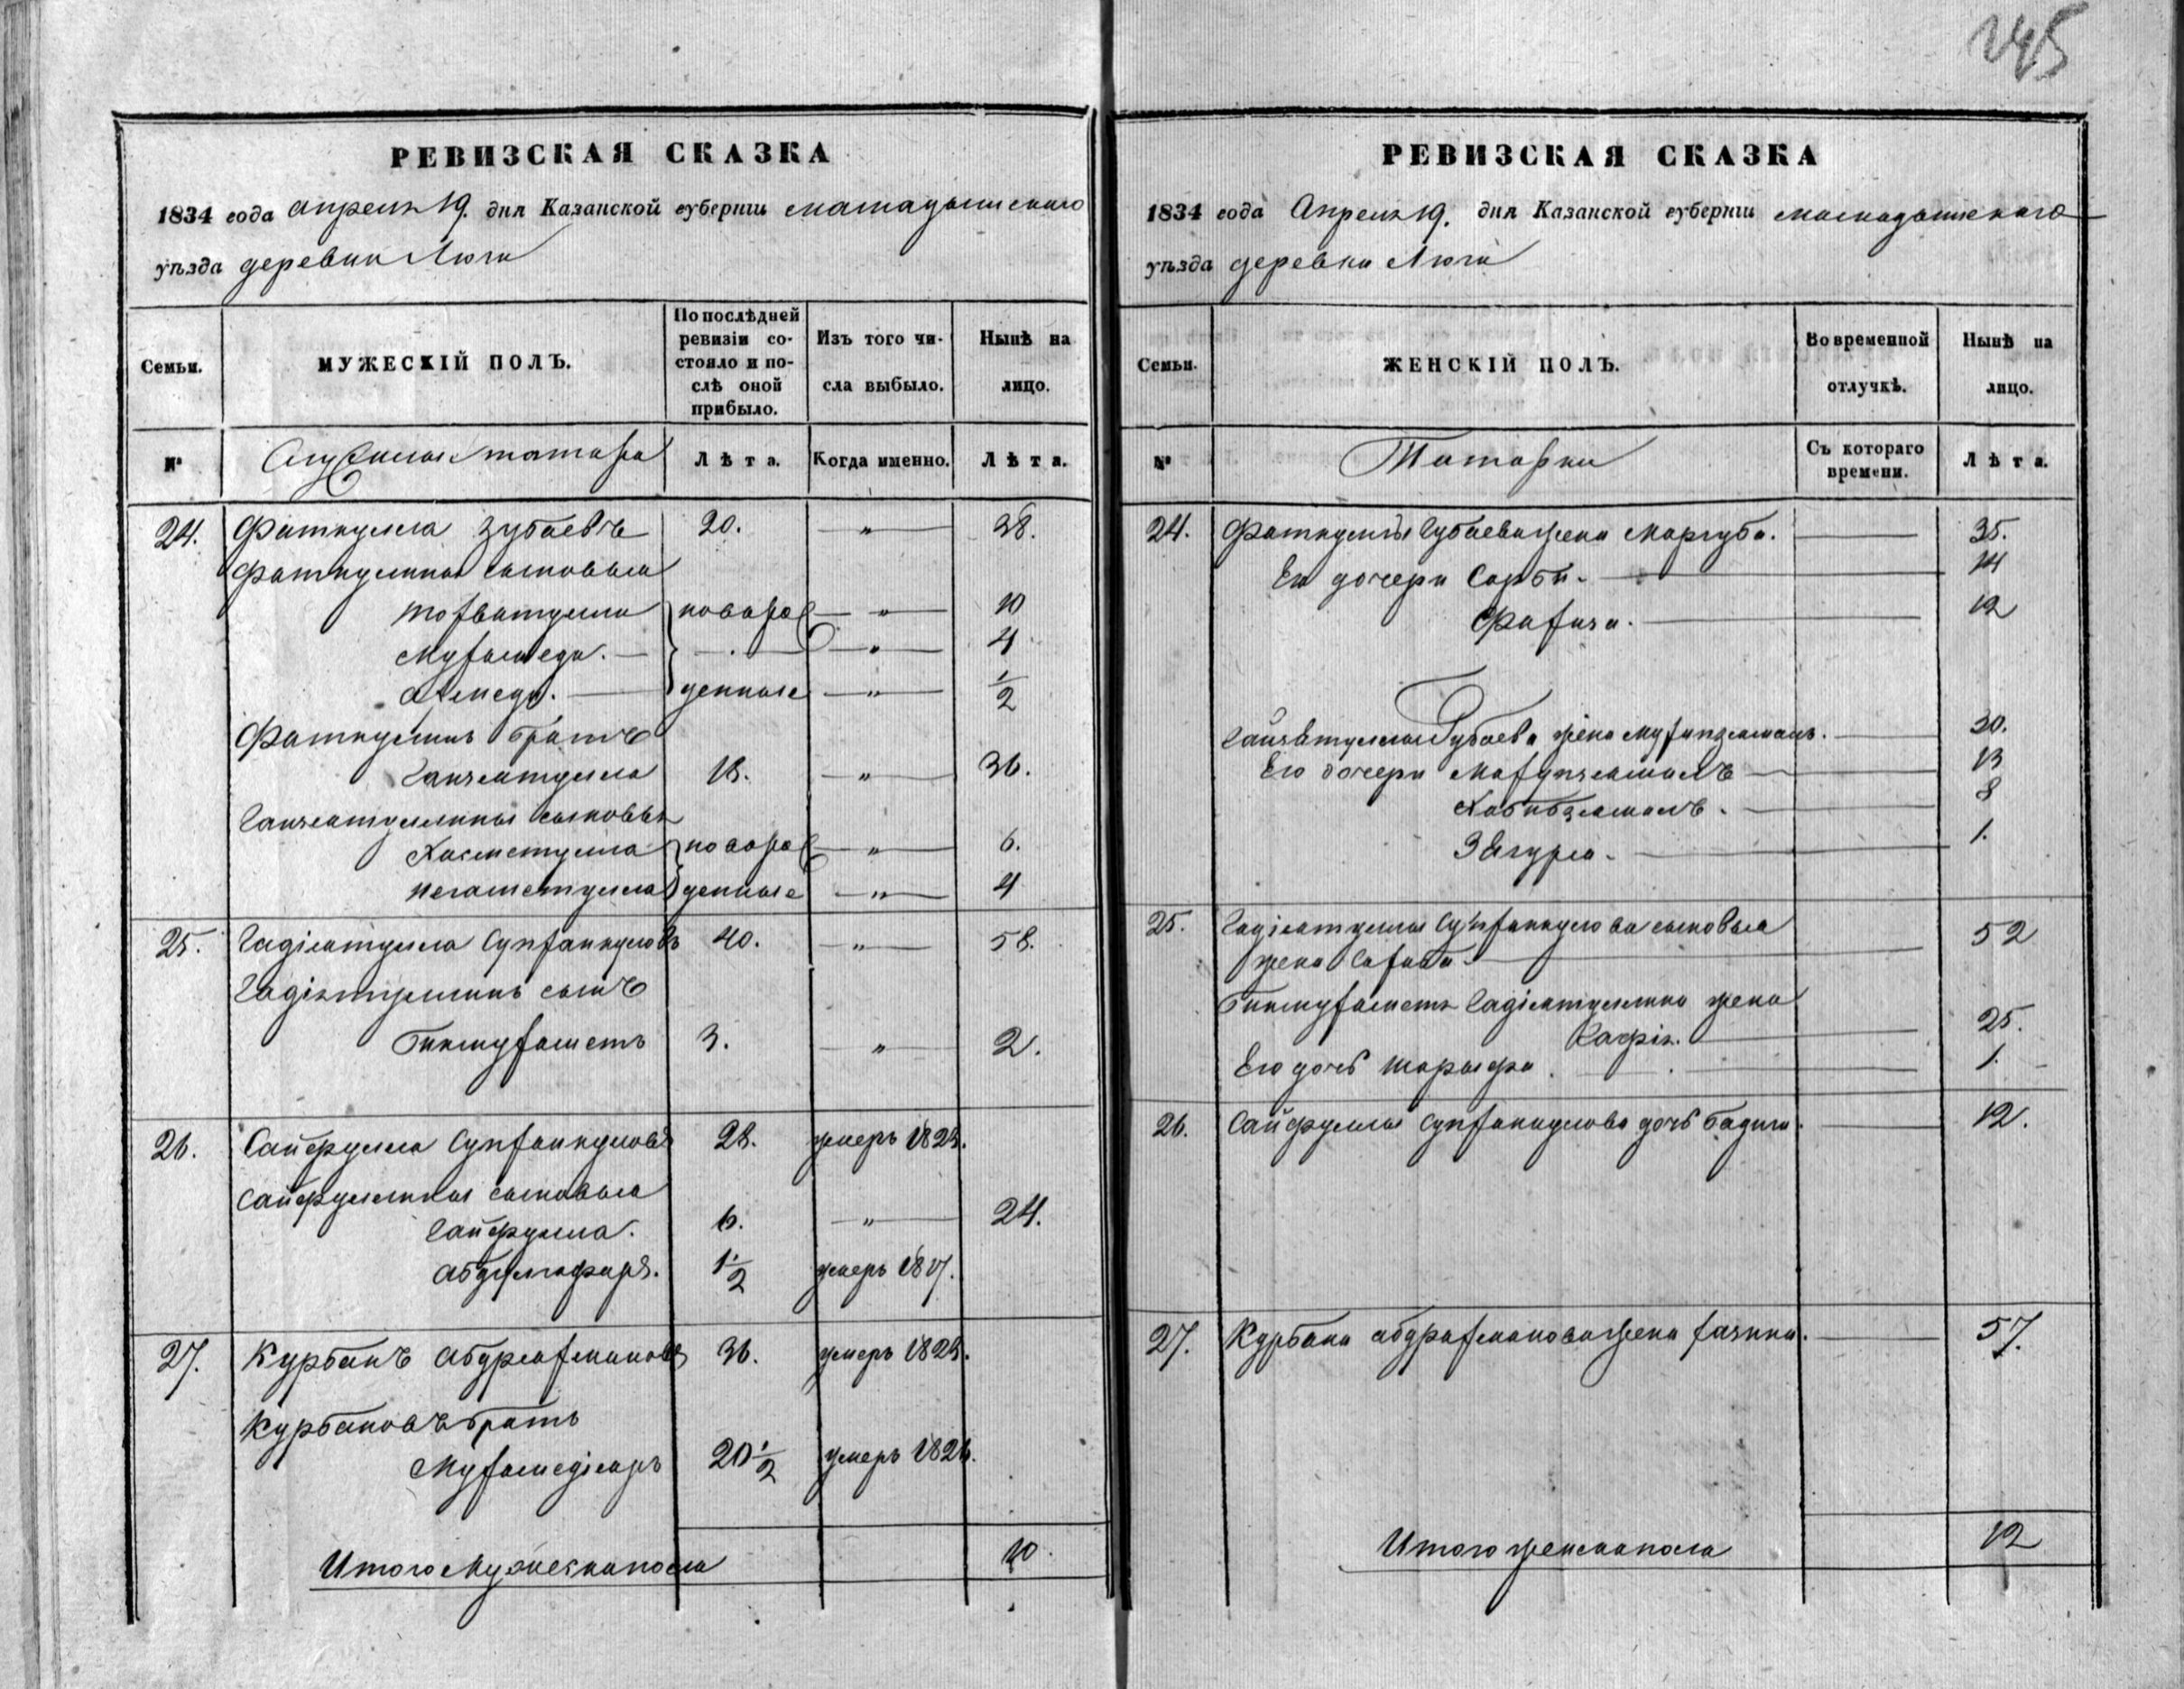 245
РЕВИЗСКАЯ СКАЗКА
1834 года апреля 19. дня Казанской губернiи мамадышскаго
уѣзда деревни Люги
Семьи.
МУЖЕСКIЙ ПОЛЪ.
По послѣдней ревизiи состояло и послѣ оной прибыло.
Изъ того числа выбыло.
Нынѣ на лицо.
№
татара
Лѣта.
Когда именно.
Лѣта.
24. Фаткулла Зубаевъ 20. — " — 38.
Фаткуллины сыновья
новоро — " — 10
Мухамеди. — — . — — " — 4
Ахмеди. — жденные — " — 1/2
Фаткуллинъ братъ
18. — " — 36.
сыновья
Хисметулла новоро — " — 6.
Негаметулла жденные — " — 4
25. Гадiятулла Супханкуловъ 40. — " — 58.
Гадiятуллинъ сынъ
Бикмухаметъ 3. — " — 2.
26. Сайфулла Супханкуловъ 28. умеръ 1823.
Сайфуллины сыновья
Гайфулла. 6. — " — 24.
Абдулгафаръ. 1 1/2 умеръ 1817.
27. Курбанъ Абдрахмановъ 36. умеръ 1823.
Курбановъ братъ
Мухамедiяръ 20 1/2 умеръ 1826.
Итого Мужеска пола 10.
РЕВИЗСКАЯ СКАЗКА
1834 года Апреля 19. дня Казанской губернiи мамадышскаго
уѣзда деревни Люги
Семьи.
ЖЕНСКIЙ ПОЛЪ.
Во временной отлучкѣ.
Нынѣ на лицо.
№
Татарки
Съ котораго времени.
Лѣта.
24. Фаткуллы Зубаева жена Маргуба. — 35.
Ея дочери Сарби. — 14
12
Губаева жена — 30.
Его дочери — 13
Хабибзямалъ. — 8
Загура. — 1.
25. Гадiятуллы Супханкулова сыновья
жена — 52
Бикмухаметя Гадiятуллина жена
Кафiя. — 25.
Его дочь Шарыфа . — . — 1.
26. Сайфуллы Супханкулова дочь Бадиги. — 12.
27. Курбана Абдрахманова жена — 57.
Итого женска пола 12